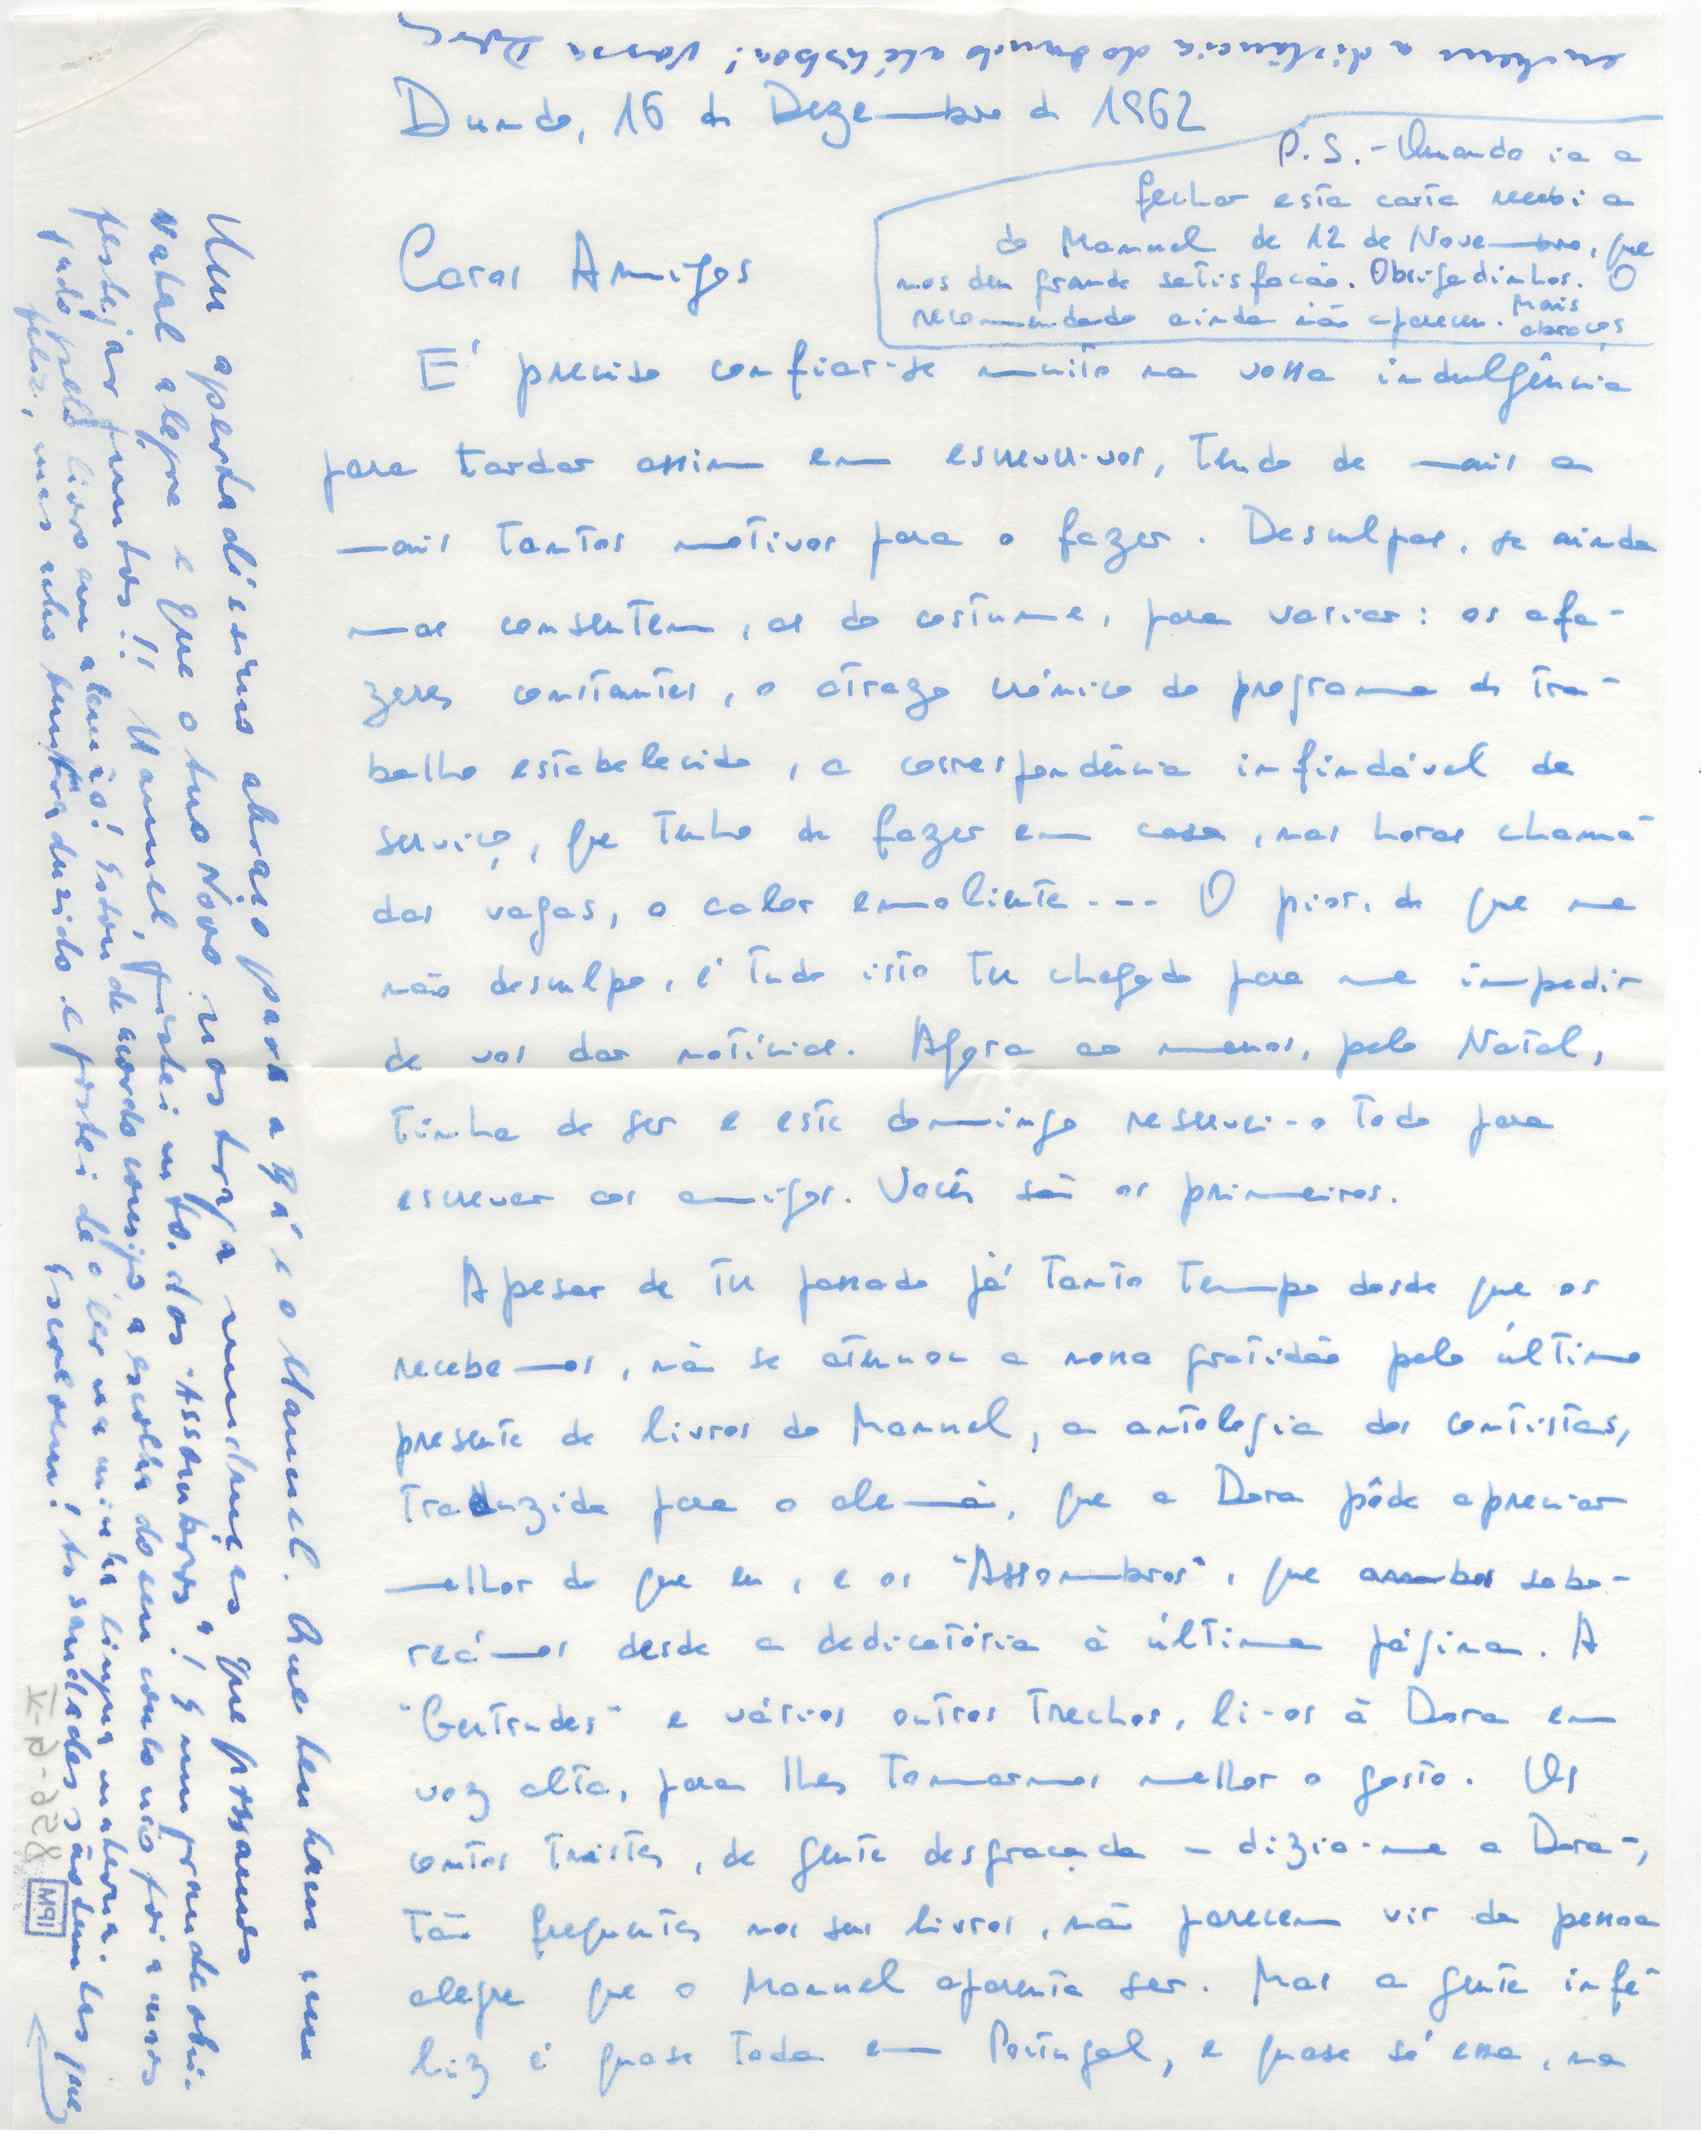 Dundo, 16 de Dezembro de 1962
P.S. - Quando ia a
fechar esta carta recebi a
do Manuel de 12 de Novembro, que
nos deu grande satisfação. Obrigadinhos. O
recomendado ainda não apareceu. Mais
abraços
Caros Amigos
É preciso confiar-se muito na vossa indulgência
para tardar assim em escrever-vos, tendo de mais a
mais tantos motivos para o fazer. Desculpas, se ainda
mas consentem, as do costume, para variar: os afa-
zeres constantes, o atrazo crónico do programa de tra-
balho estabelecido, a correspondência infindável de
serviço, que tenho de fazer em casa, nas horas chama-
das vagas, o calor emoliente... O pior, de que me
não desculpo, é tudo isto ter chegado para me impedir
de vos dar notícias. Agora ao menos, pelo Natal,
tinha de ser e este domingo reservei-o todo para
escrever aos amigos. Vocês são os primeiros.
Apesar de ter passado já tanto tempo desde que os
recebemos, não se atenuou a nossa gratidão pelo último
presente de livros do Manuel, a antologia dos contistas,
traduzida para o alemão, que a Dora pôde apreciar
melhor do que eu, e os "Assombros", que ambos sabo-
reámos desde a dedicatória à última página. A
"Gertrudes" e vários outros trechos, li-os à Dora em
voz alta, para lhes tomarmos melhor o gosto. Os
contos tristes, de gente desgraçada - dizia-me a Dora -,
tão frequentes nos seus livros, não parecem vir da pessoa
alegre que o Manuel aparenta ser. Mas a gente infe-
liz é quase toda em Portugal, e quase só essa, na
Um apertadíssimo abraço para a Bá e o Manuel. Que tenham um
Natal alegre e que o Ano Novo nos traga mudanças que possamos
festejar juntos!! Manuel, gostei mto. dos "Assombros"! E um grande obri-
gado pelo livro em alemão! Estou de acordo consigo a escolha do seu conto não foi a mais
feliz, mas acho bem traduzido e gostei de o ler na minha língua materna.
Escrevem! As saudades são tantas que
enchem a distância do Dundo até Lisboa! Vossa Dora
V-6-658
M91